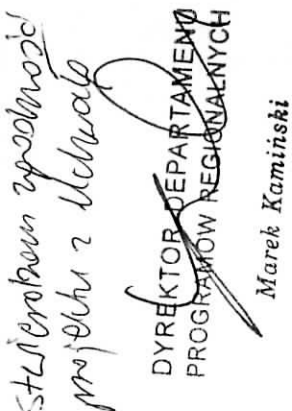 stwierdzam zgodność
projektu z Uchwałą
DYREKTOR DEPARTAMENTU
PROGRAMÓW REGIONALNYCH
Marek Kamiński